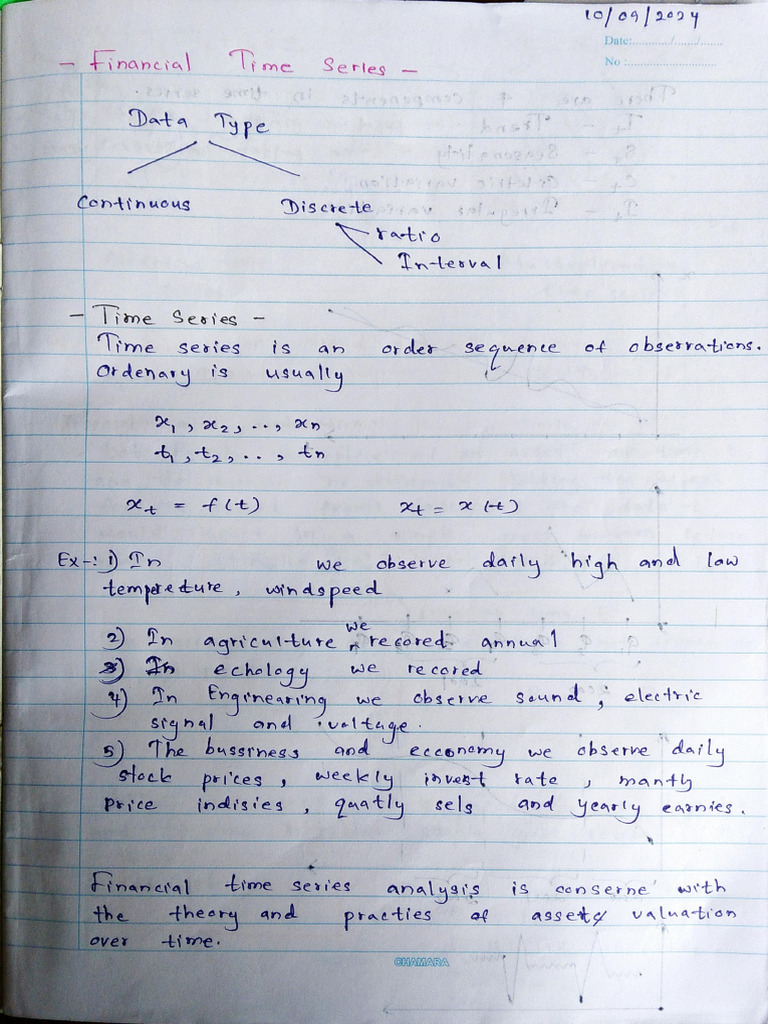 10/09/2024
Date:............/......../........
No :..............................
- Financial Time Series -
Data Type
Continuous Discrete
ratio
Interval
- Time Series -
Time series is an order sequence of observations.
Ordenary is usually
x1, x2, .., xn
t1, t2, .., tn
xt = f(t) xt = x(t)
Ex-: 1) In we observe daily high and low
temperetture, windspeed
2) In agriculture we recored annual
3) In echology we recored
4) In Enginearing we observe sound, electric
signal and voltage.
5) The bussiness and ecconomy we observe daily
stock prices, weekly invest rate, mantly
price indisies, quatly sels and yearly earnies.
Financial time series analysis is conserne with
the theory and practies of assets valuation
over time.
CHAMARA